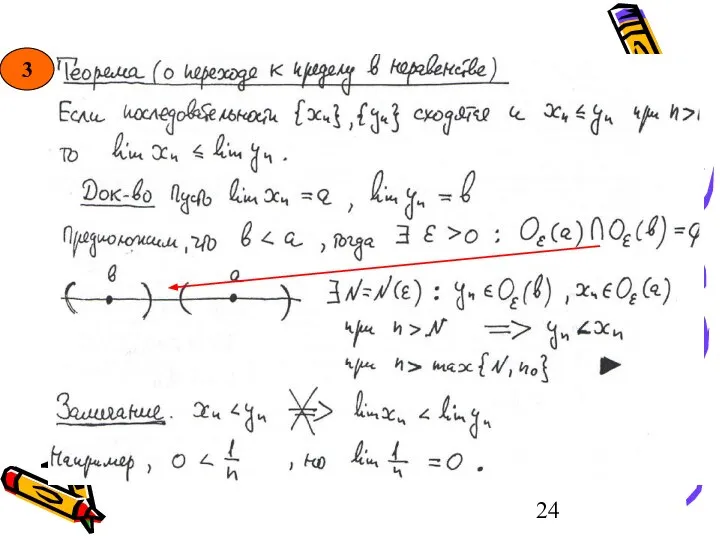 3
Теорема (о переходе к пределу в неравенстве)
Если последовательности {xₙ}, {yₙ} сходятся и xₙ ≤ yₙ при n >
то lim xₙ ≤ lim yₙ.
Док-во Пусть lim xₙ = a, lim yₙ = b
Предположим, что b < a, тогда ∃ ε > 0 : Oε(a) ∩ Oε(b) =
b a
∃ N = N(ε) : yₙ ∈ Oε(b), xₙ ∈ Oε(a)
при n > N ⟹ yₙ < xₙ
при n > max{N, n₀} ▶
Замечание. xₙ < yₙ ⇏ lim xₙ < lim yₙ
Например, 0 < 1/n, но lim 1/n = 0.
24